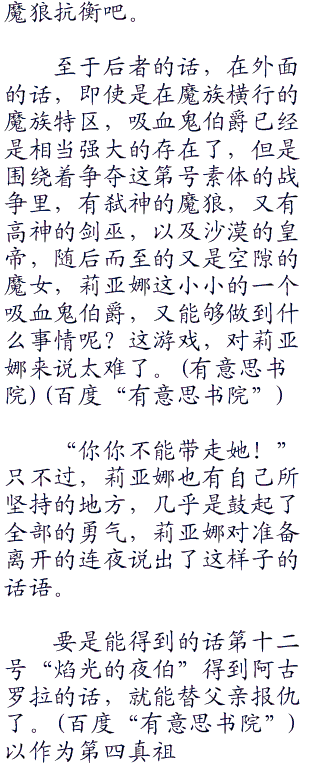 魔狼抗衡吧。
至于后者的话，在外面
的话，即使是在魔族横行的
魔族特区，吸血鬼伯爵已经
是相当强大的存在了，但是
围绕着争夺这第号素体的战
争里，有弑神的魔狼，又有
高神的剑巫，以及沙漠的皇
帝，随后而至的又是空隙的
魔女，莉亚娜这小小的一个
吸血鬼伯爵，又能够做到什
么事情呢？这游戏，对莉亚
娜来说太难了。(有意思书
院)(百度“有意思书院”)
“你你不能带走她！”
只不过，莉亚娜也有自己所
坚持的地方，几乎是鼓起了
全部的勇气，莉亚娜对准备
离开的连夜说出了这样子的
话语。
要是能得到的话第十二
号“焰光的夜伯”得到阿古
罗拉的话，就能替父亲报仇
了。(百度“有意思书院”)
以作为第四真祖